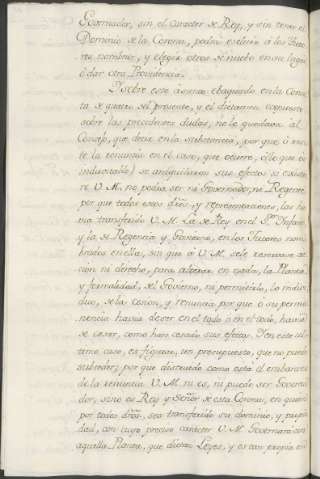 Governador, sin el caracter de Rey, y sin tener el
Dominio de la Corona, podria excluir á los Tuto-
res nombrados, y elegir otros de nuevo en su lugar
ó dar otra Providencia.
Y sobre este ... en la Consul-
ta de quatro del presente, y el dictamen expuesto
sobre las precedentes dudas, no le quedava al
Consejo, que decir en la substancia, por que ó
te la renuncia en el caso, que ocurre, (lo que es
indubitable) se aniquilaron sus efectos si existe
te V. M. no podia ser ni Governador, ni Regente
por que todos estos dros, y representaciones, las ha-
via transferido V. M. La de Rey en el Sr. Infante,
y la de Regencia y Govierno, en los Tutores nom-
brados en ella, sin que á V. M. le
cion ni derecho, para alterar en nada, la Planta
y formalidad, del Govierno, ni permitirlo, lo indivi-
duo, de la cesion, y renuncia por que ó su perma-
nencia havia de ser en el todo ó en el todo, havian
de cesar, como han cesado sus efectos. Y en este ul-
timo caso, es figurar, un presupuesto, que no puede
subsistir, por que disuelto como está el embarazo
de la renuncia V. M. ni es, ni puede ser Governa-
dor, sino es Rey y Señor de esta Corona, en quien
por todos dros, sea transferido su dominio, y propie-
dad, con cuyo preciso caracter V. M. Governará con
aquella Planta, que dictan Leyes, y es tan propia en